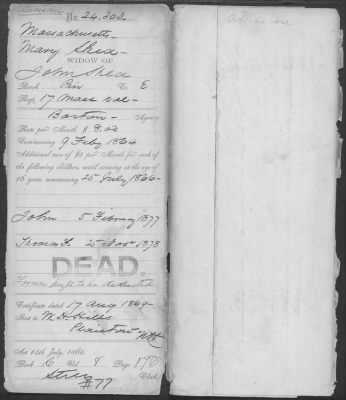 No. 24,303
Massachusetts
Mary Shea
WIDOW OF
John Shea
Rank Priv Co. E
Regt. 17 Mass Vols
Boston Agency
Rate per Month $ 8.00
Commencing 9 Feby 1864
Additional sum of $2 per Month for each of
the following children, until arriving at the age of
16 years, commencing 25 July 1866
John 5 February 1877
Thomas F. 25 Nov. 1878
DEAD.
Former payt to be deducted
Certificate dated 17 Aug 1869
Sent to M. H. Hills
Plaistow
N.H.
Act 14th July, 1862.
Book C Vol. 8 Page 170
Clerk.
#77